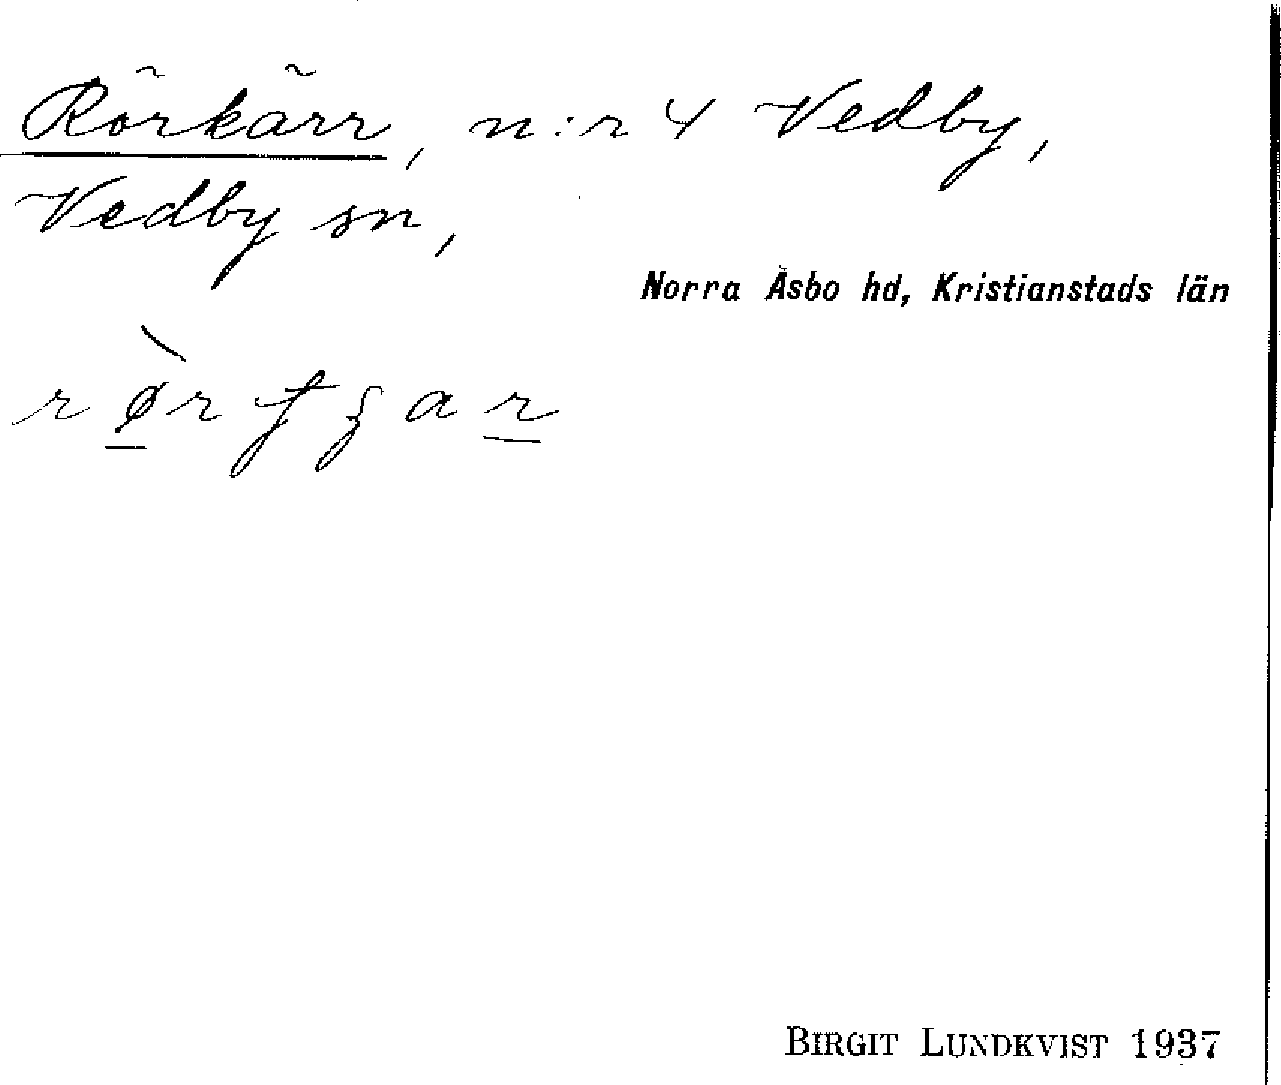 Rörkärr, n:r 4 Vedby,
Vedby sn,
Norra Åsbo hd, Kristianstads län
BIRGIT LUNDKVIST 1937